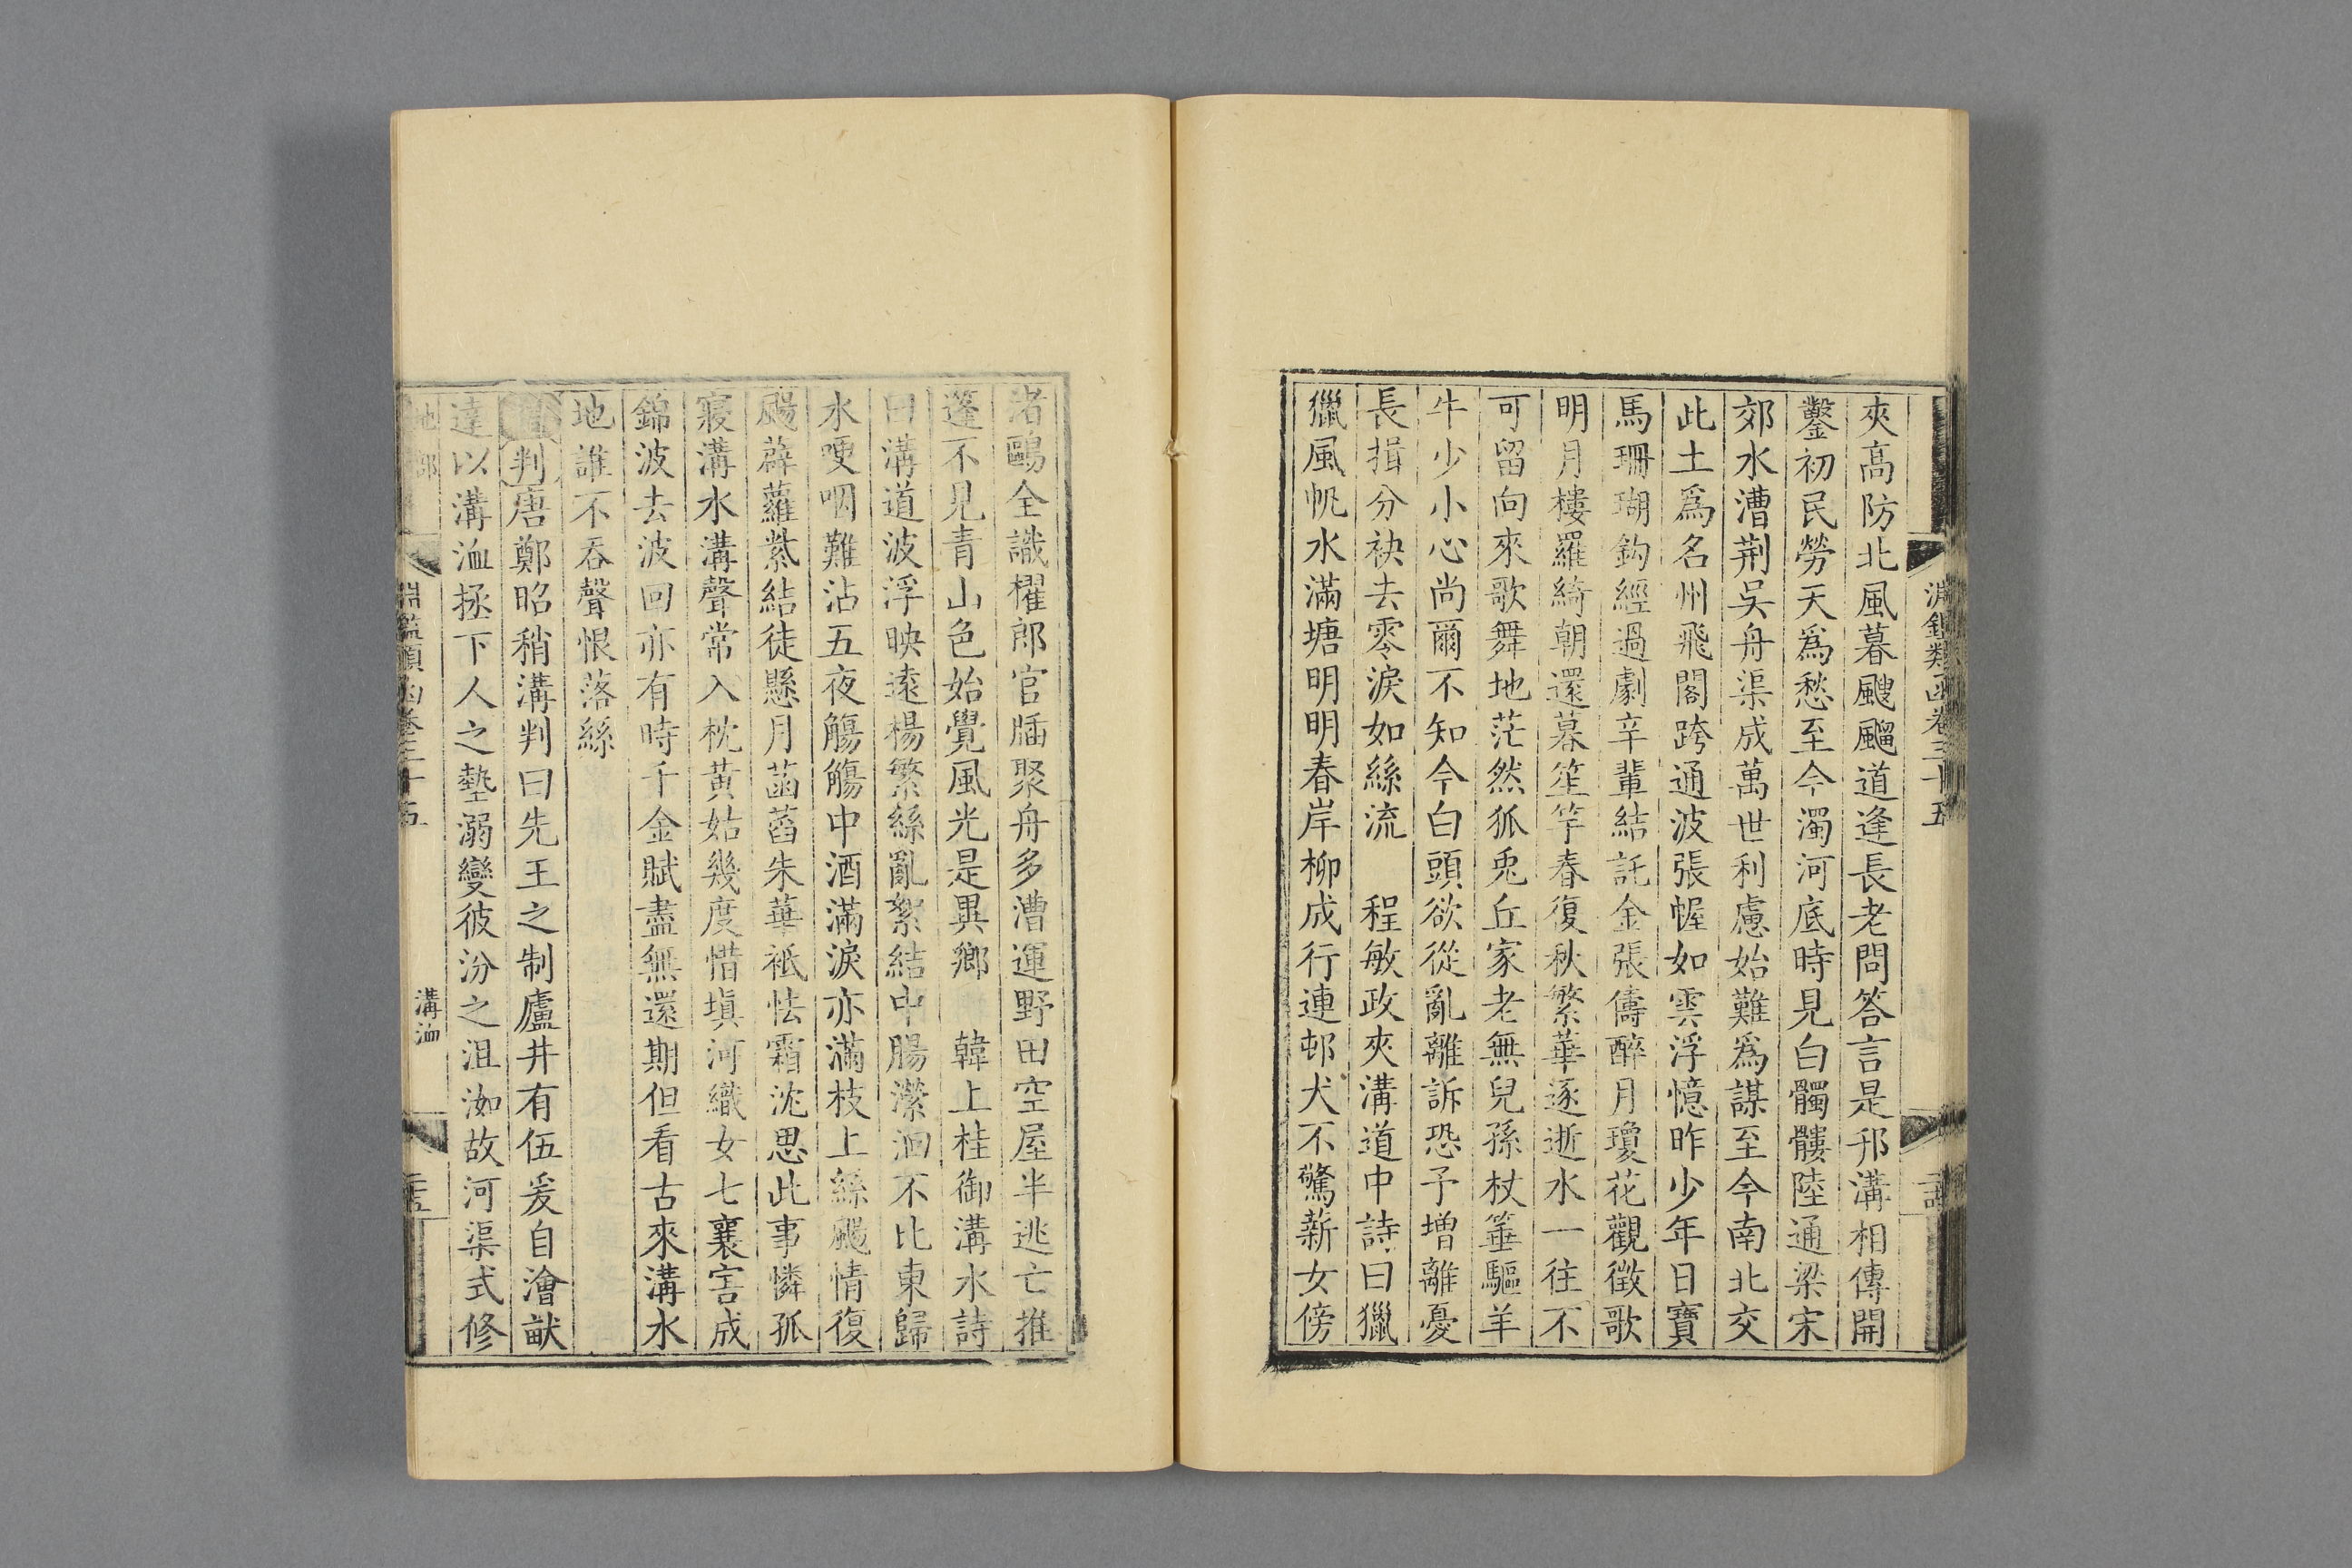 夾高防北風暮颼飀道逢長老問答言是邗溝相傳開
鑿初民勞天爲愁至今濁河底時見白髑髏陸通梁宋
郊水漕荆吳舟渠成萬世利慮始難爲謀至今南北交
此土爲名州飛閣跨通波張幄如雲浮憶昨少年日寶
馬珊瑚鈎經過劇辛輩結託金張儔醉月瓊花觀徵歌
明月樓羅綺朝還暮笙竽春復秋繁華逐逝水一往不
可留向來歌舞地茫然狐兎丘家老無兒孫杖箠驅羊
牛少小心尚爾不知今白頭欲從亂離訴恐予增離憂
長揖分袂去零淚如絲流 程敏政夾溝道中詩曰獵
獵風帆水滿塘明明春岸柳成行連邨犬不驚薪女傍
渚鷗全識櫂郎官牐聚舟多漕運野田空屋半逃亡推
蓬不見青山色始覺風光是異鄉 韓上桂御溝水詩
曰溝道波浮映遠楊繁絲亂絮結中腸瀠洄不比東歸
水哽咽難沾五夜觴觴中酒滿淚亦滿枝上絲颺情復
颺薜蘿縈結徒懸月菡萏朱華祗怯霜沈思此事憐孤
寢溝水溝聲常入枕黃姑幾度惜塡河織女七襄害成
錦波去波回亦有時千金賦盡無還期但看古來溝水
地誰不吞聲恨落絲
判唐鄭昭稍溝判曰先王之制廬井有伍爰自澮畎
達以溝洫拯下人之墊溺變彼汾之沮洳故河渠式修
地部
淵鑑類函卷三十五
溝洫